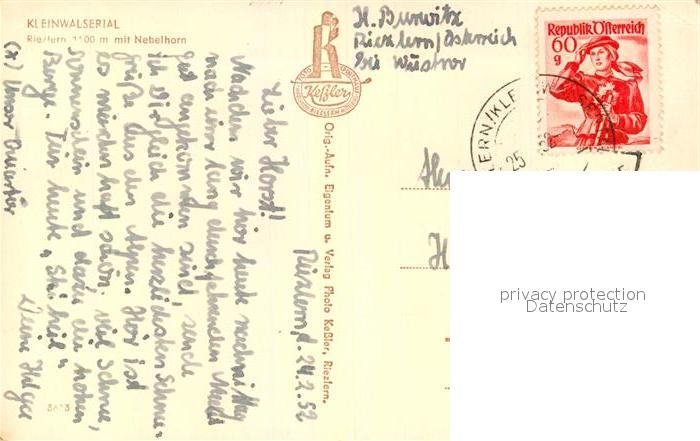 KLEINWALSERTAL
Riezlern 1100 m mit Nebelhorn
Keßler
Orig.-Aufn. Eigentum u. Verlag Photo Keßler, Riezlern.
H. Burwitz
Riezlern/Österreich
bei Wüstner
Republik Österreich
60
g
LERN/KLE
25
privacy protection
Datenschutz
Riezlern d. 24.2.52
Lieber Horst!
Nachdem wir hier heute nachmittag
nach
gut angekommen sind, sende
ich Dir gleich die herzlichsten Schnee-
grüße aus den Alpen. Hier ist
es märchenhaft schön. Viel Schnee,
Sonnenschein und dazu die hohen
Berge. Für heute "Ski heil"
Deine Helga
(x) Unser Quartier